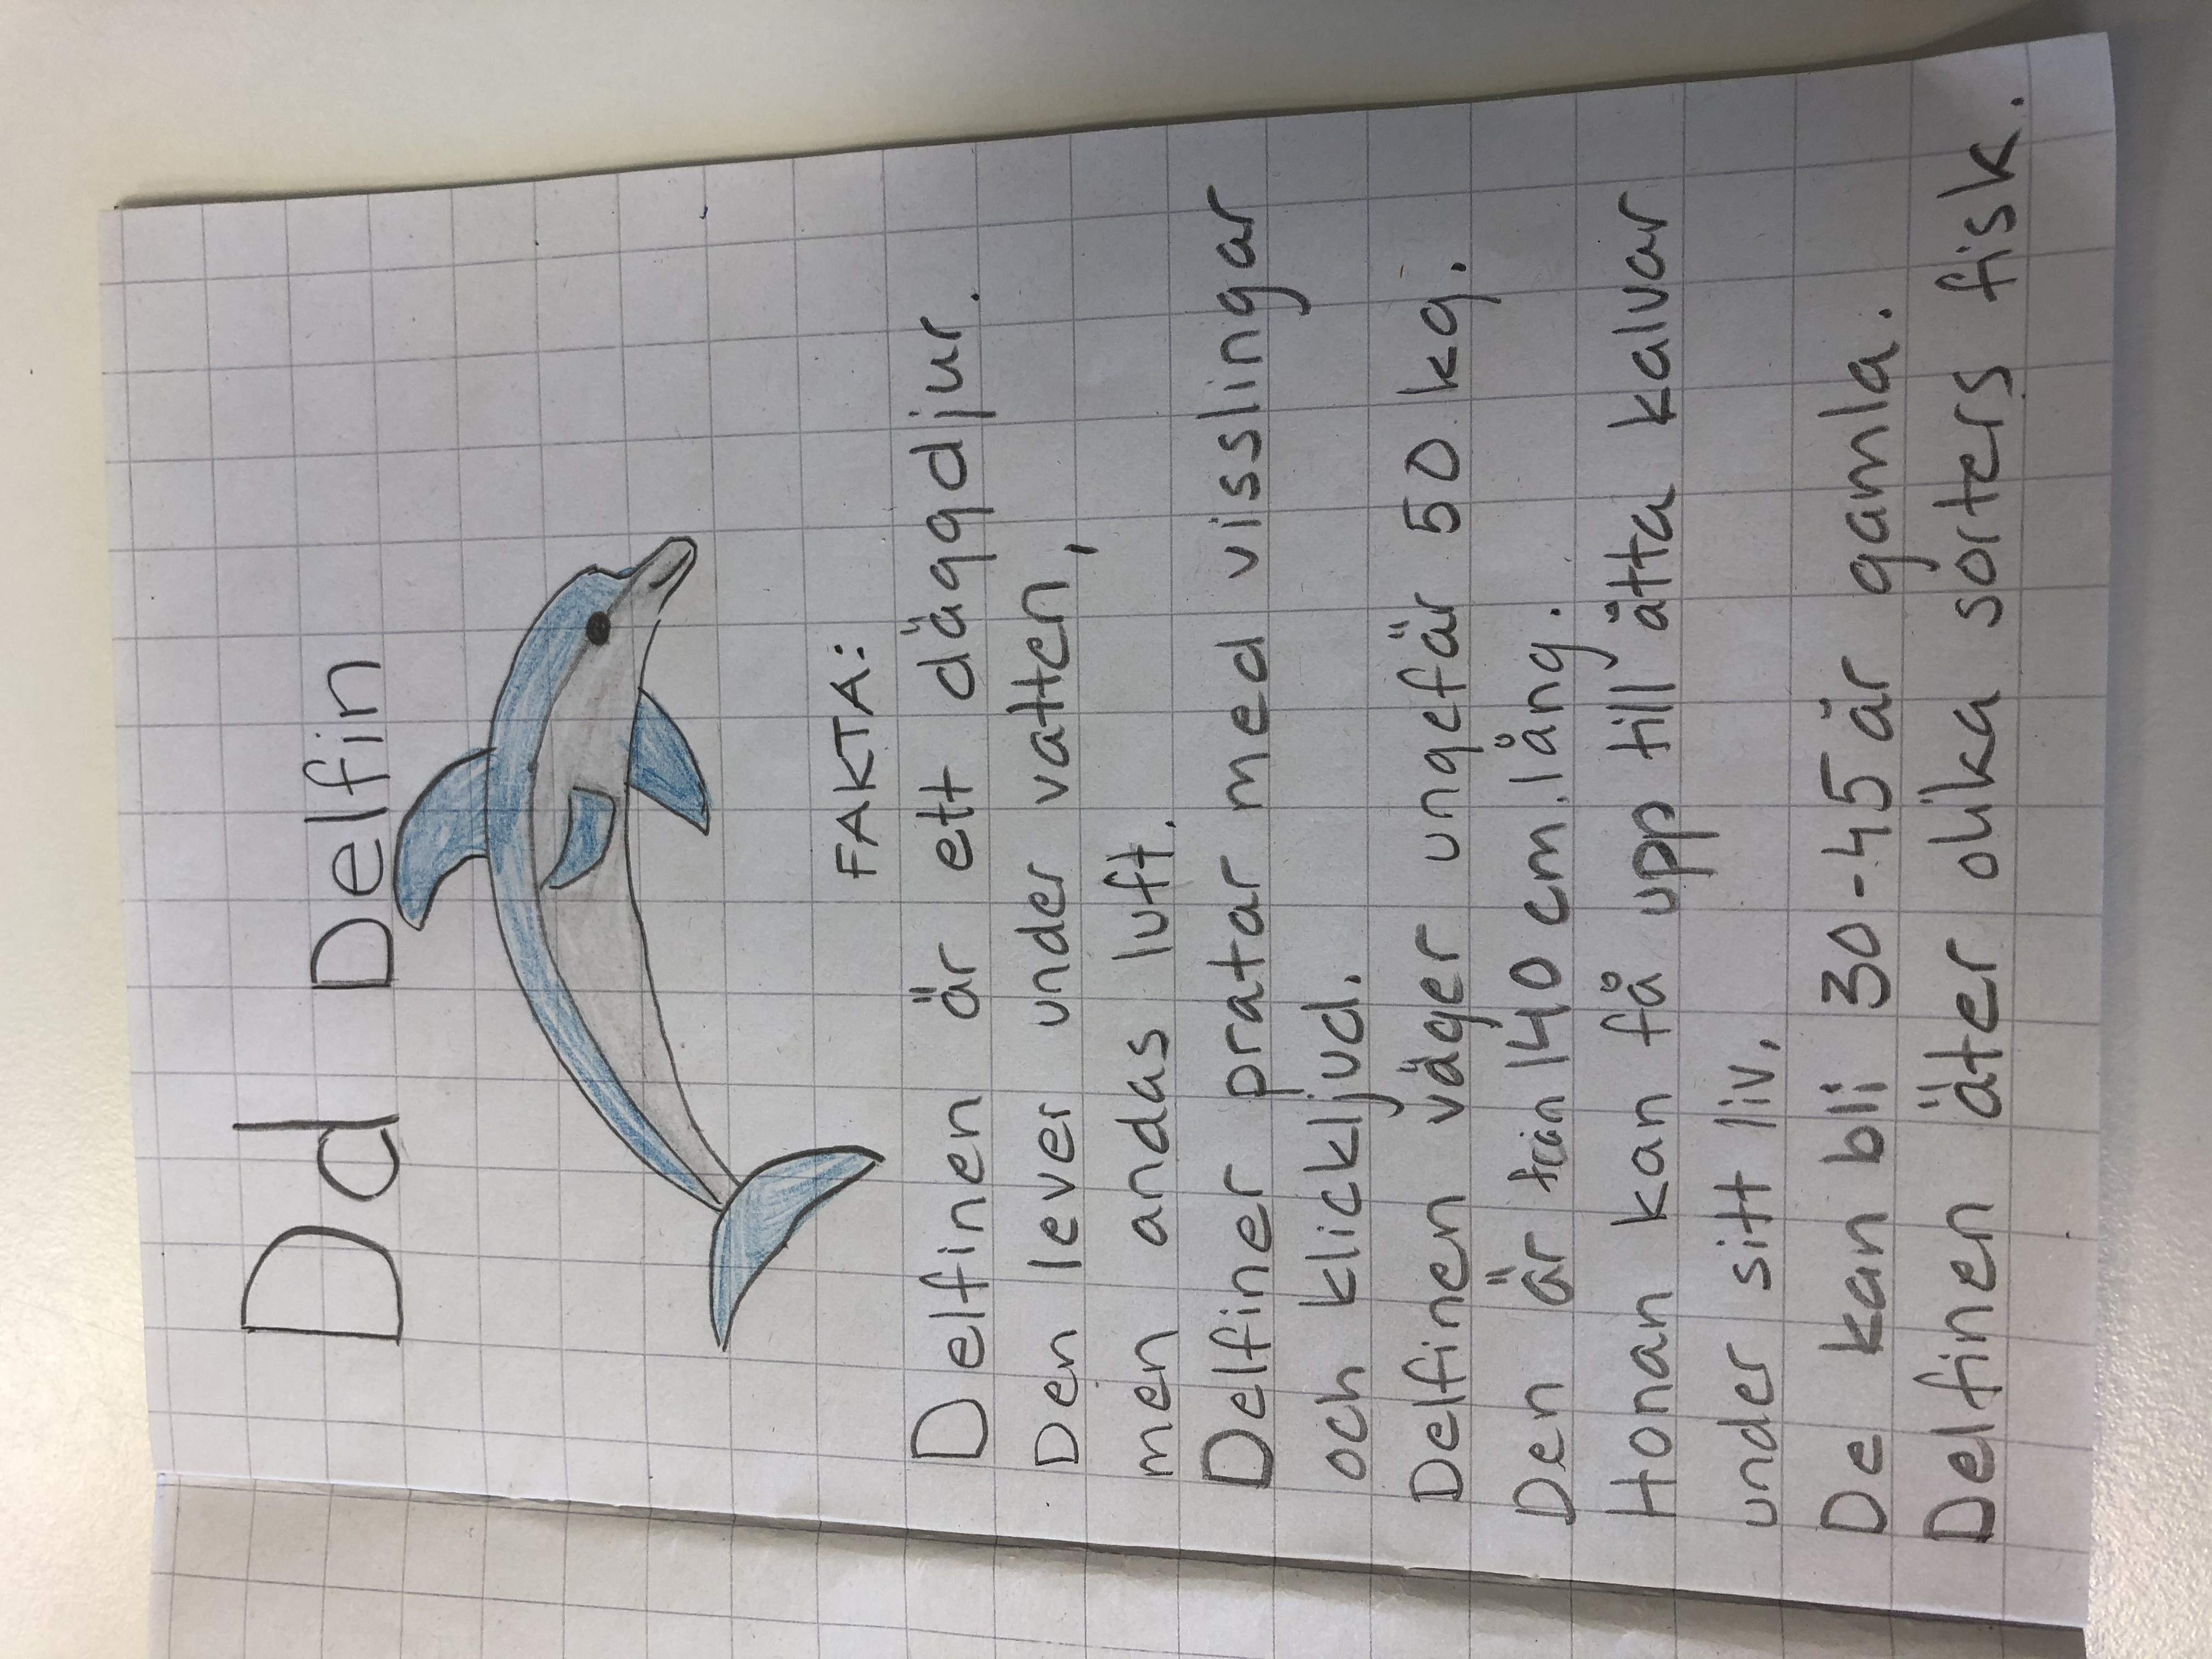 Dd Delfin
FAKTA:
Delfinen är ett däggdjur.
Den lever under vatten,
men andas luft.
Delfiner pratar med visslingar
och klickljud.
Delfinen väger ungefär 50 kg.
Den är från 140 cm. lång.
Honan kan få upp till åtta kalvar
under sitt liv.
De kan bli 30-45 år gamla.
Delfinen äter olika sorters fisk.